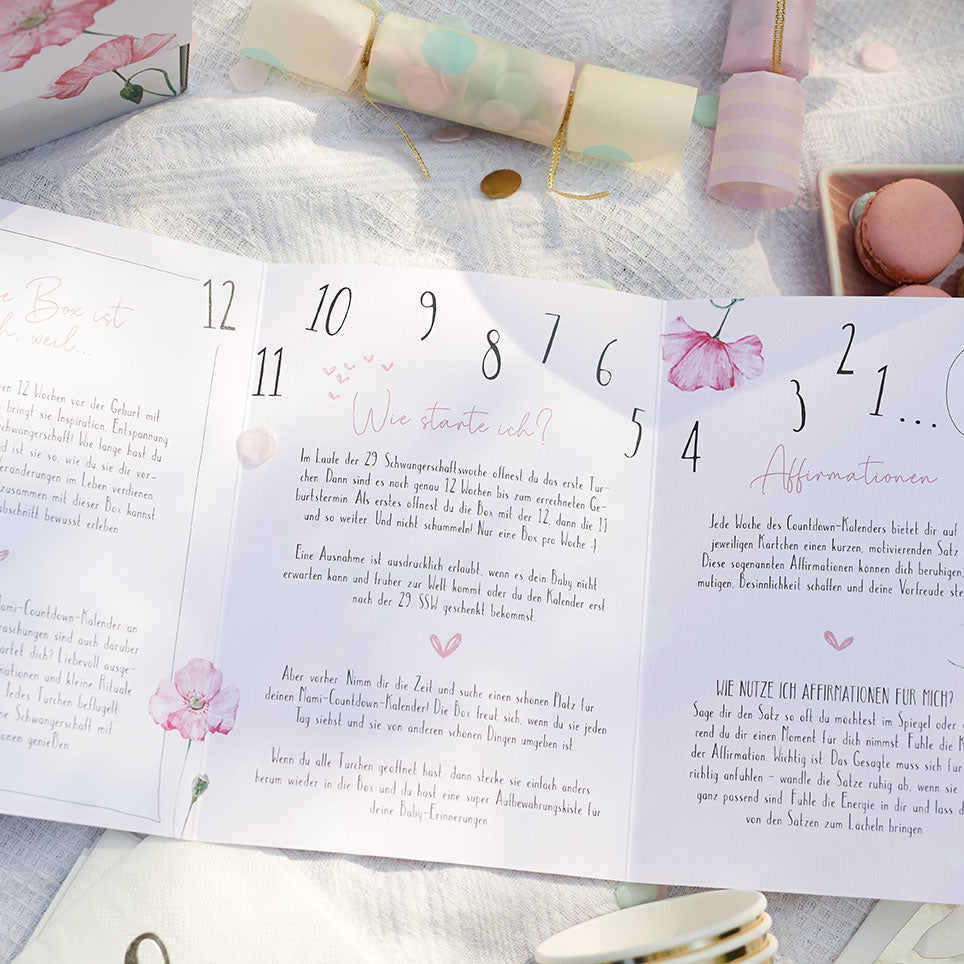 12
e Box ist
h, weil...
en 12 Wochen vor der Geburt mit
bringt sie Inspiration, Entspannung
chwangerschaft! Wie lange hast du
nd ist sie so, wie du sie dir vor-
eränderungen im Leben verdienen
zusammen mit dieser Box kannst
abschnitt bewusst erleben.
Mami-Countdown-Kalender an
raschungen sind auch darüber
artet dich? Liebevoll ausge-
mationen und kleine Rituale
Jedes Türchen beflügelt
ne Schwangerschaft mit
ionen genießen.
11 10 9 8 7 6 5
Wie starte ich?
Im Laufe der 29. Schwangerschaftswoche öffnest du das erste Tür-
chen. Dann sind es noch genau 12 Wochen bis zum errechneten Ge-
burtstermin. Als erstes öffnest du die Box mit der 12, dann die 11
und so weiter. Und nicht schummeln! Nur eine Box pro Woche ;)
Eine Ausnahme ist ausdrücklich erlaubt, wenn es dein Baby nicht
erwarten kann und früher zur Welt kommt oder du den Kalender erst
nach der 29. SSW geschenkt bekommst.
Aber vorher: Nimm dir die Zeit und suche einen schönen Platz für
deinen Mami-Countdown-Kalender! Die Box freut sich, wenn du sie jeden
Tag siehst und sie von anderen schönen Dingen umgeben ist.
Wenn du alle Türchen geöffnet hast, dann stecke sie einfach anders
herum wieder in die Box und du hast eine super Aufbewahrungskiste für
deine Baby-Erinnerungen.
4 3 2 1...
Affirmationen
Jede Woche des Countdown-Kalenders bietet dir auf
jeweiligen Kärtchen einen kurzen, motivierenden Satz
Diese sogenannten Affirmationen können dich beruhigen,
mutigen, Besinnlichkeit schaffen und deine Vorfreude ste
WIE NUTZE ICH AFFIRMATIONEN FÜR MICH?
Sage dir den Satz so oft du möchtest im Spiegel oder
rend du dir einen Moment für dich nimmst. Fühle die K
der Affirmation. Wichtig ist: Das Gesagte muss sich für
richtig anfühlen – wandle die Sätze ruhig ab, wenn sie
ganz passend sind. Fühle die Energie in dir und lass d
von den Sätzen zum Lächeln bringen.